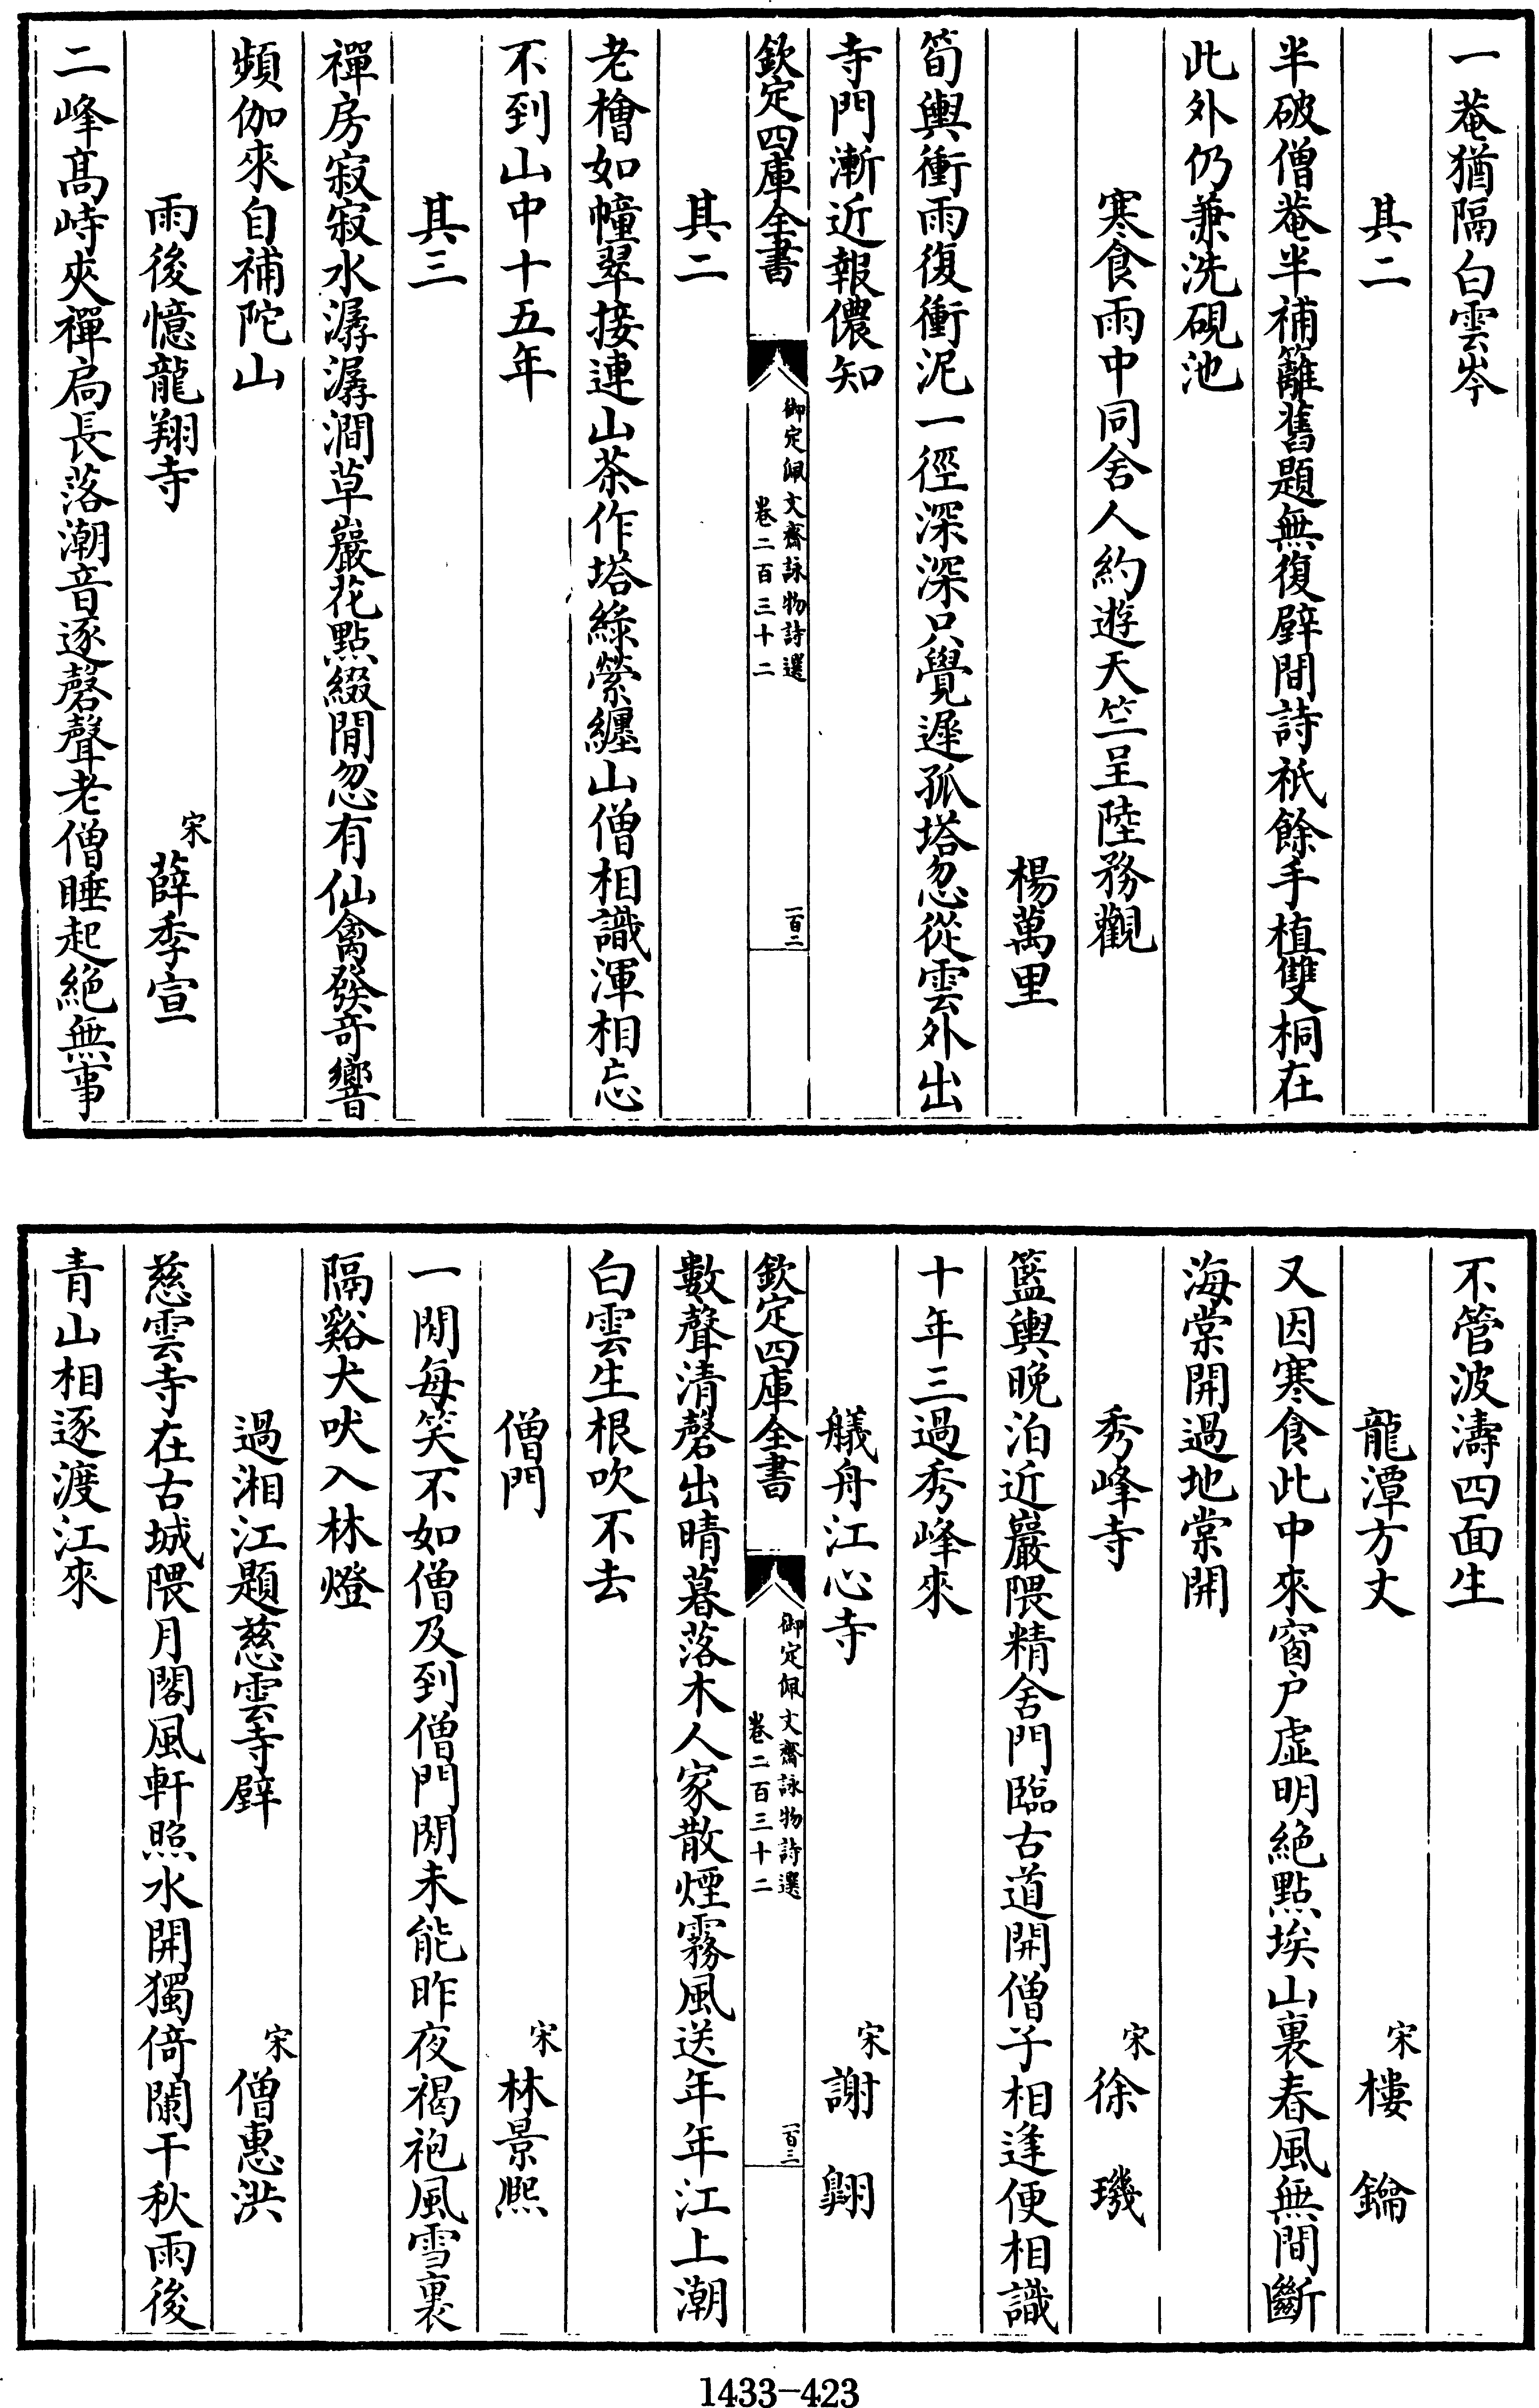 一菴猶隔白雲岑
其二
半破僧菴半補籬舊題無復壁間詩祇餘手植雙桐在
此外仍兼洗硯池
寒食雨中同舍人約遊天竺呈陸務觀
楊萬里
筍輿衝雨復衝泥一徑深深只覺遲孤塔忽從雲外出
寺門漸近報儂知
欽定四庫全書
御定佩文齋詠物詩選
卷二百三十二
一百二
其二
老檜如幢翠接連山茶作塔綠縈纏山僧相識渾相忘
不到山中十五年
其三
禪房寂寂水潺潺澗草巖花點綴閒忽有仙禽發奇響
頻伽來自補陀山
雨後憶龍翔寺
宋薛季宣
二峰高峙夾禪扃長落潮音逐磬聲老僧睡起絶無事
不管波濤四面生
龍潭方丈
宋樓鑰
又因寒食此中來窗户虛明絶點埃山裏春風無間斷
海棠開過地棠開
秀峰寺
宋徐璣
籃輿晚泊近巖隈精舍門臨古道開僧子相逢便相識
十年三過秀峰來
艤舟江心寺
宋謝翺
欽定四庫全書
御定佩文齋詠物詩選
卷二百三十二
一百三
數聲清磬出晴暮落木人家散煙霧風送年年江上潮
白雲生根吹不去
僧門
宋林景熈
一閒每笑不如僧及到僧門閒未能昨夜褐袍風雪裏
隔谿犬吠入林燈
過湘江題慈雲寺壁
宋僧惠洪
慈雲寺在古城隈月閣風軒照水開獨倚闌干秋雨後
青山相逐渡江來
1433-423